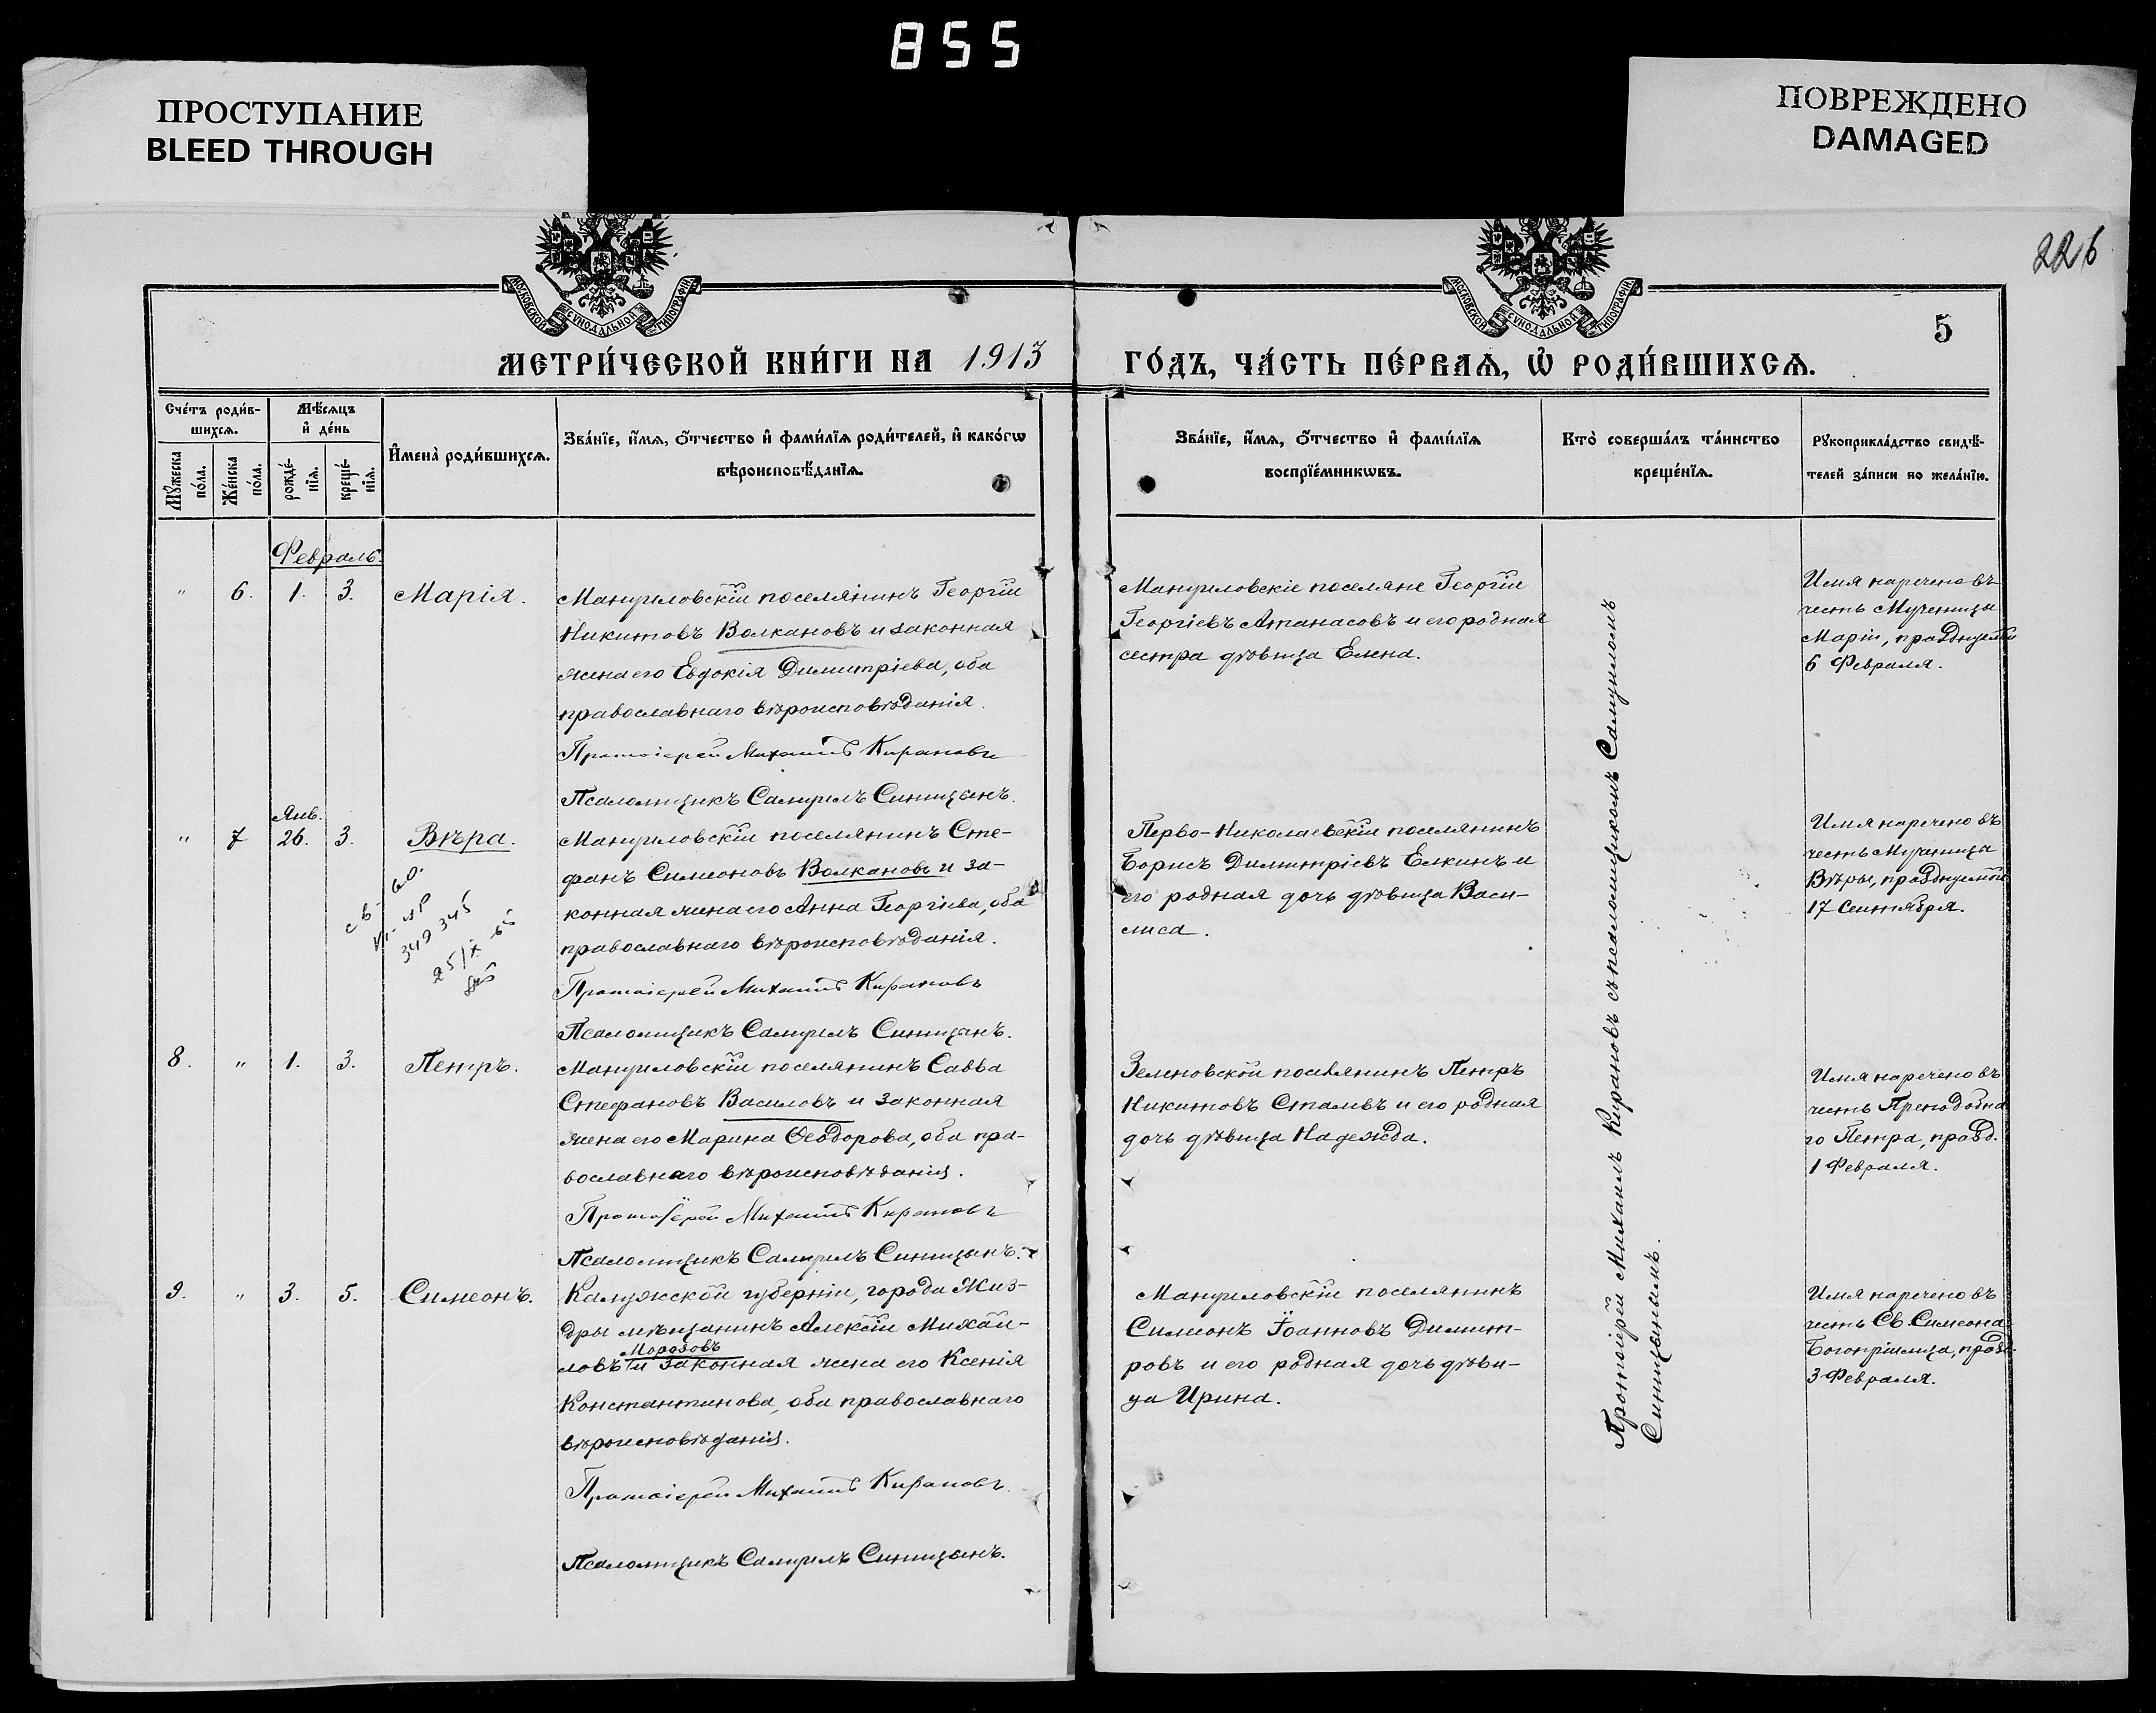 855
ПРОСТУПАНИЕ
BLEED THROUGH
ПОВРЕЖДЕНО
DAMAGED
226
МОСКОВСКОЙ СѴНОДАЛЬНОЙ ТИПОГРАФІИ
МОСКОВСКОЙ СѴНОДАЛЬНОЙ ТИПОГРАФІИ
5
МЕТРИ́ЧЕСКОЙ КНИ́ГИ НА 1913
ГО́ДЪ, ЧА́СТЬ ПЕ́РВАѦ, Ѡ҆ РОДИ́ВШИХСѦ.
Сче́тъ роди́в-
шихсѧ.
Мꙋ́жеска
по́ла.
Же́нска
по́ла.
Мѣ́сѧцъ
и҆ де́нь
рожде́-
нїѧ.
креще́-
нїѧ.
И҆мена̀ роди́вшихсѧ.
Зва́нїе, и҆́мѧ, ѻ҆́тчество и҆ фами́лїѧ роди́телей, и҆ како́гѡ
вѣроисповѣ́данїѧ.
Зва́нїе, и҆́мѧ, ѻ҆́тчество и҆ фами́лїѧ
воспрїе́мникѡвъ.
Кто̀ соверша́лъ та́инство
креще́нїѧ.
Рꙋкоприкла́дство свидѣ́-
телей за́писи по жела́нїю.
Февраль.
" 6. 1. 3. Марія.
Мануиловскій поселянинъ Георгій
Никитовъ Волкановъ и законная
жена его Евдокія Димитріева, оба
православнаго вѣроисповѣданія.
Протоіерей Михаилъ Кирановъ
Псаломщикъ Самуилъ Синицынъ.
Мануиловскіе поселяне Георгій
Георгіевъ Атанасовъ и его родная
сестра дѣвица Елена.
Имя наречено въ
честь Мученицы
Маріи, празднуемой
6 Февраля.
Янв.
" 7 26. 3. Вѣра.
349345
Мануиловскій поселянинъ Сте-
фанъ Симеоновъ Волкановъ и за-
конная жена его Анна Георгіева, оба
православнаго вѣроисповѣданія.
Протоіерей Михаилъ Кирановъ
Псаломщикъ Самуилъ Синицынъ.
Перво-Николаевскій поселянинъ
Борисъ Димитріевъ Елкинъ и
его родная дочь дѣвица Васи-
лиса.
Имя наречено въ
честь Мученицы
Вѣры, празднуемой
17 Сентября.
8. " 1. 3. Петръ.
Мануиловскій поселянинъ Савва
Стефановъ Василовъ и законная
жена его Марина Ѳеодорова, оба пра-
вославнаго вѣроисповѣданія.
Протоіерей Михаилъ Кирановъ
Псаломщикъ Самуилъ Синицынъ.
Зеленовской поселянинъ Петръ
Никитовъ Сталевъ и его родная
дочь дѣвица Надежда.
Имя наречено въ
честь Преподобна
го Петра, празд.
1 Февраля.
9. " 3. 5. Симеонъ.
Калужской губерніи, города Жиз-
дры мѣщанинъ Алексій Михай-
Морозовъ
ловъ и законная жена его Ксенія
Константинова, оба православнаго
вѣроисповѣданія.
Протоіерей Михаилъ Кирановъ
Псаломщикъ Самуилъ Синицынъ.
Мануиловскій поселянинъ
Симеонъ Іоанновъ Димит-
ровъ и его родная дочь дѣви-
ца Ирина.
Имя наречено въ
честь Св. Симеона
Богопріимца, празд.
3 Февраля.
Протоіерей Михаилъ Кирановъ съ псаломщикомъ Самуиломъ
Синицынымъ.